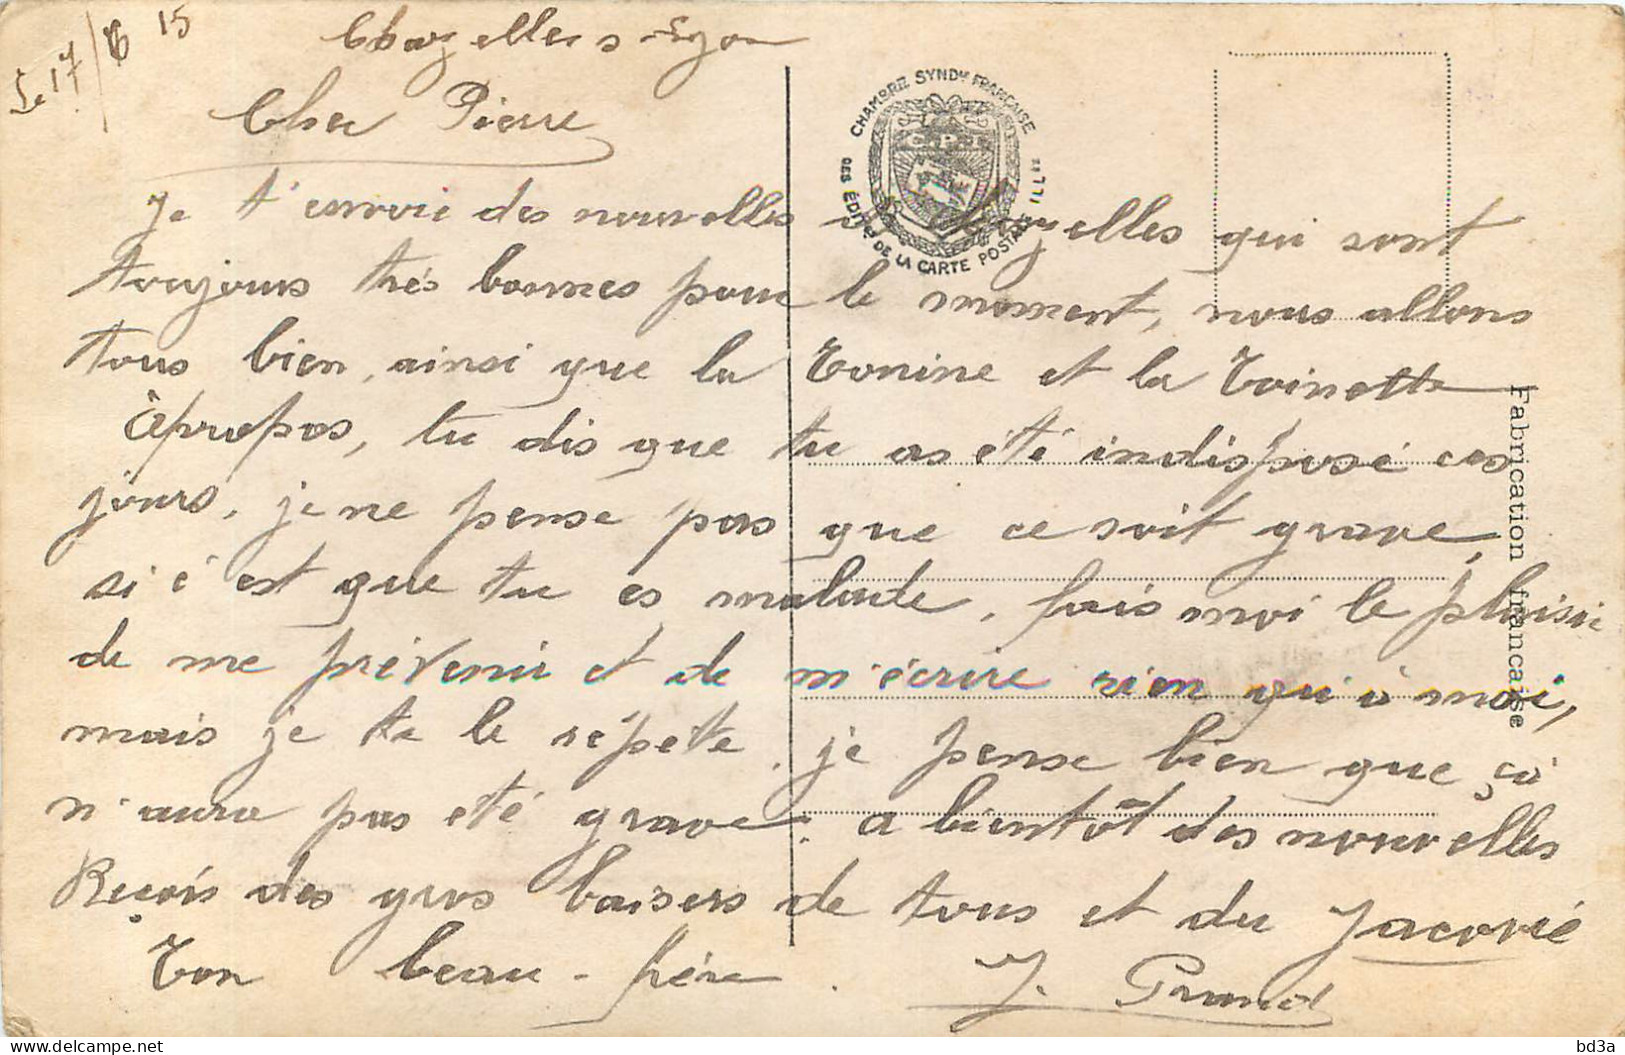 Le 17/6 15
Chazelles s-Lyon
Cher Pierre
Je t'envoie des nouvelles de Chazelles qui sont
toujours trés bonnes pour le moment, nous allons
tous bien, ainsi que la Tonine et la Toinette
àpropos, tu dis que tu as été indisposé ces
jours, je ne pense pas que ce soit grave,
si c'est que tu es malade, fais moi le plaisir
de me prévenir et de m'écrire rien qu'à moi,
mais je te le répète, je pense bien que çà
n'aura pas été grave. a bientôt des nouvelles
Reçois des gros baisers de tous et du
Ton beau-frére. J.
CHAMBRE SYNDle FRANÇAISE
DES ÉDITrs DE LA CARTE POSTALE ILLée
Fabrication française
bd3a